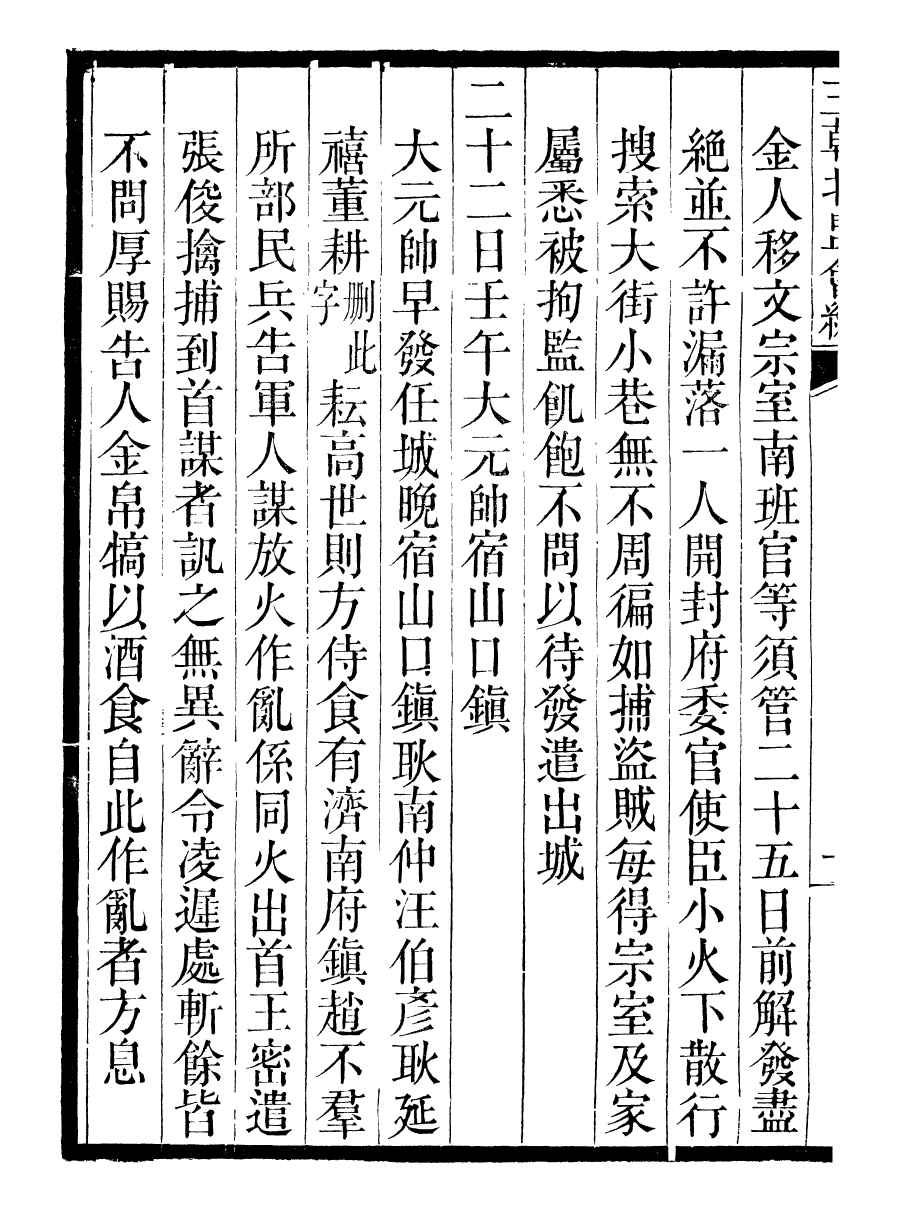 金人移文宗室南班官等須管二十五日前解發盡
絶並不許漏落一人開封府委官使臣小火下散行
搜索大街小巷無不周徧如捕盜賊每得宗室及家
屬悉被拘監飢飽不問以待發遣出城
二十二日壬午大元帥宿山口鎮
大元帥早發任城晚宿山口鎮耿南仲汪伯彥耿延
禧董耕刪此字耘高世則方侍食有濟南府鎮趙不羣
所部民兵告軍人謀放火作亂係同火出首王密遣
張俊擒捕到首謀者訊之無異辭令凌遲處斬餘皆
不問厚賜告人金帛犒以酒食自此作亂者方息